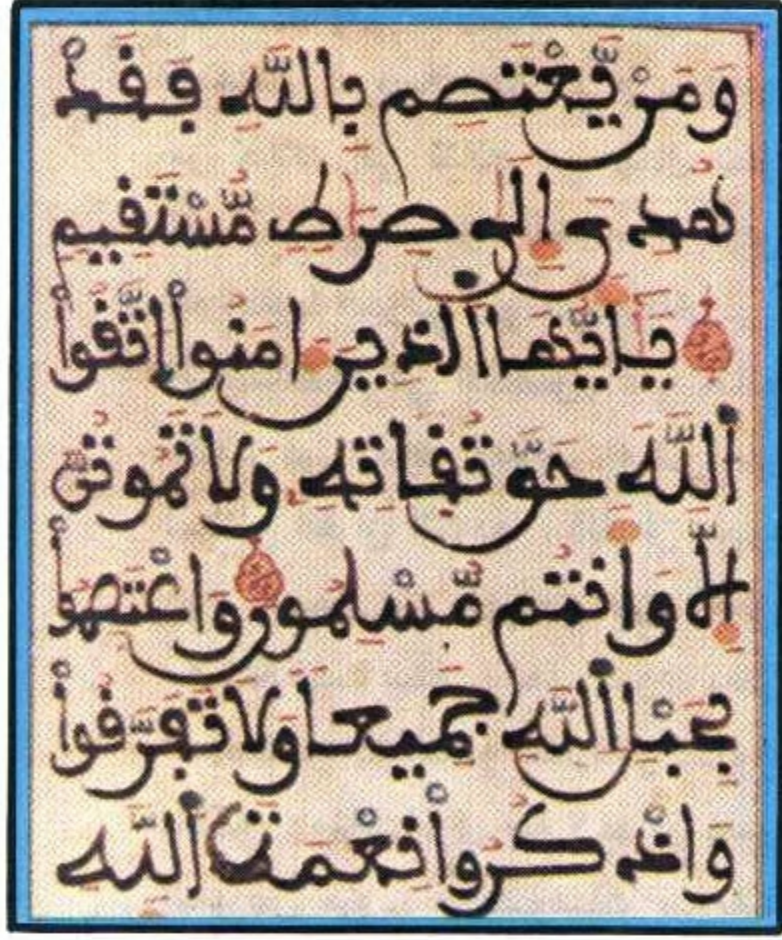 وَمَنْ يَّعْتَصِم بِاللَّهِ فَقَدْ
هُدِىَ إِلَى صِرَٰطٍ مُّسْتَقِيمٍ
يَـٰأَيُّهَا اَلَذِينَ ءَامَنُواْ اُتَّقُواْ
اَللَّهَ حَقَّ تُقَاتِهِ وَلَا تَمُوتُنَّ
إِلَّا وَأَنتُم مُّسْلِمُونَ وَاعْتَصِمُواْ
بِحَبْلِ اِللَّهِ جَمِيعًا وَلَا تَفَرَّقُواْ
وَاذْكُرُواْ نِعْمَةَ اَللَّهِ